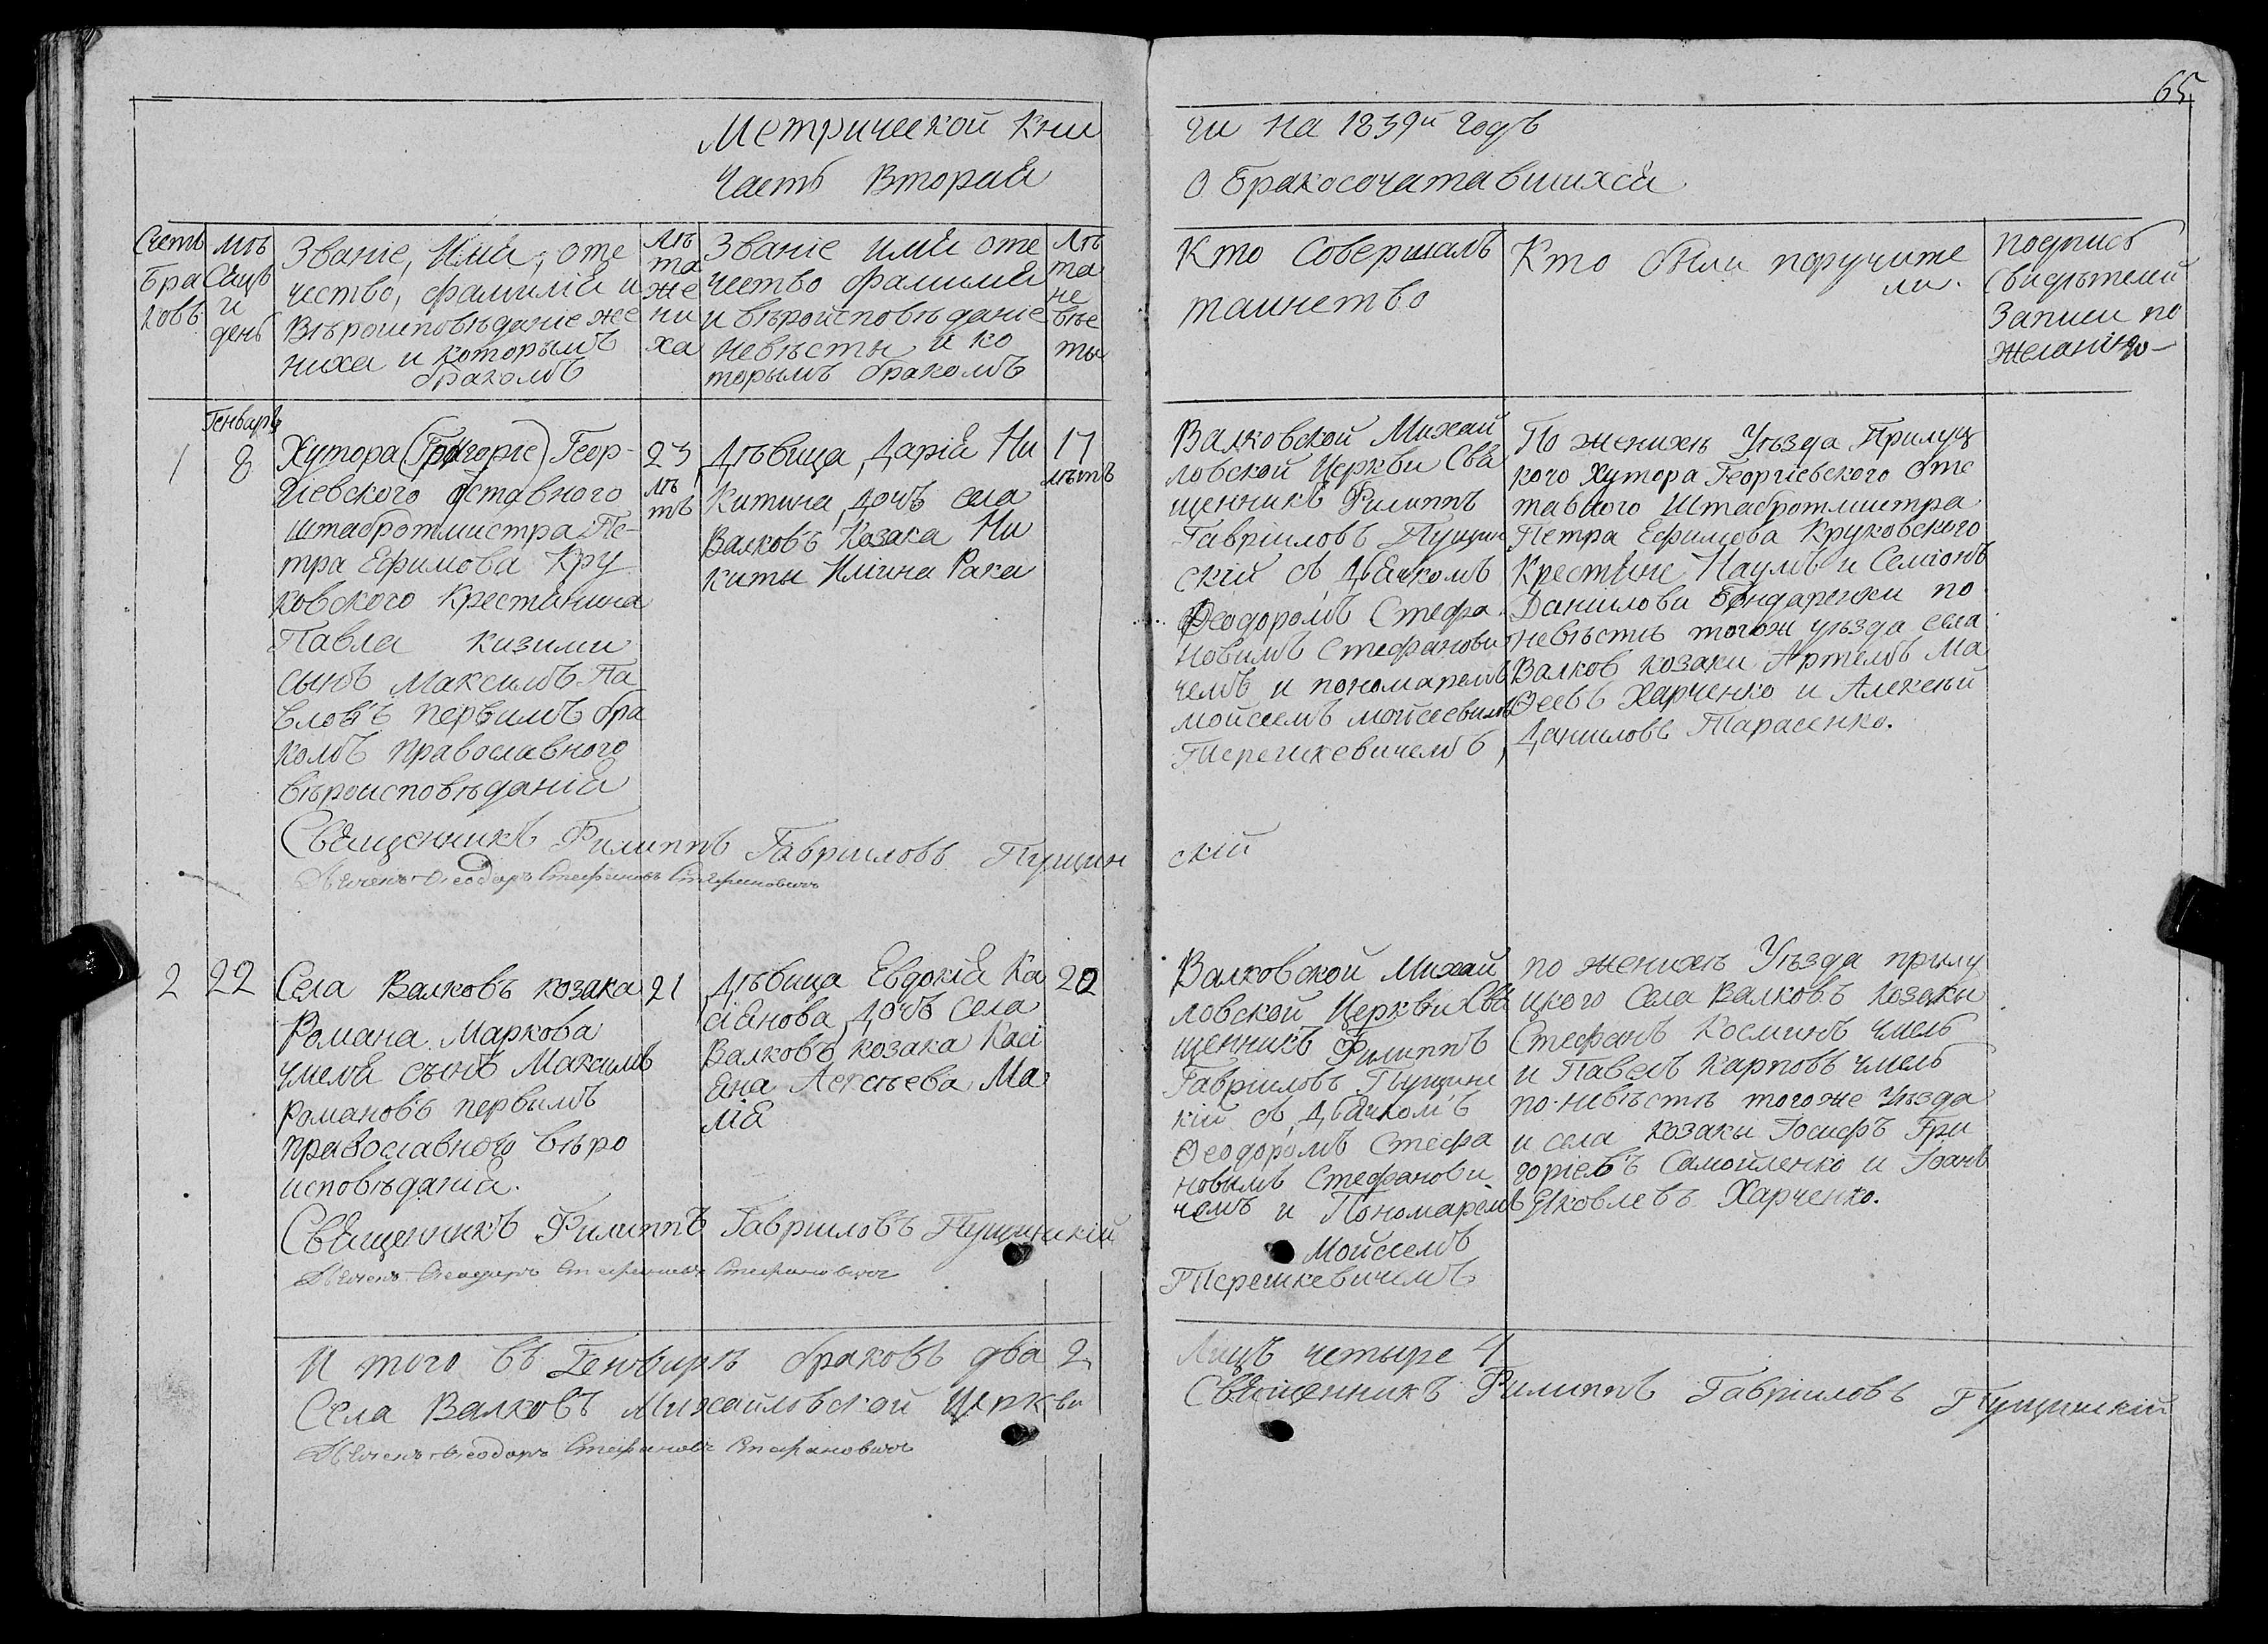 65.
Метрической Кни
ги на 1839й годъ
Часть Вторая
О Бракосочатавшихся
Счетъ
Бра
ковъ
Мѣ
сяцъ
и
день
Званіе, Имя, оте
чество, фамилія и
Вѣроисповѣданіе же
ниха и которымъ
бракомъ
Лѣ
та
же
ни
ха
Званіе имя оте
чество фамилия
и вѣроисповѣданіе
невѣсты и ко
торымъ бракомъ
Лѣ
та
не
вѣс
ты
Кто Совершалъ
таинство
Кто были поручите
ли.
подпись
Свидѣтелей
Записи по
желанію
Генварь
1
8
Хутора (Григоріе) Геор-
гіевского отставного
штабротмистра Пе-
тра Ефимова Кру
ковского Крестянина
Павла Кизими
сынъ Максимъ Па
вловъ первимъ бра
комъ православного
вѣроисповѣданія
23
лѣ
тъ
Дѣвица Дарія Ни
китина дочь села
Валковъ Козака Ни
киты Ильина Рака
17
лѣтъ
Валковской Михай
ловской Церкви Свя
щенникъ Филиппъ
Гавріиловъ Пущин
скій съ Дьячкомъ
Феодоромъ Стефа
новимъ Стефанови
чемъ и пономаремъ
Мойсеемъ Мойсеевимъ
Терешкевичемъ,
По женихѣ Уѣзда Прилуц
кого Хутора Георгіевского отс
тавного Штабротмистра
Петра Ефимова Круковского
Крестяне Наумъ и Семіонъ
Данилови Бондаренки по
невѣстѣ тогож уѣзда села
Валков козаки Артемъ Ма
ѳеевъ Харченко и Алексѣй
Даниловъ Тарасенко.
Священникъ Филиппъ Гавріиловъ Пущин
скій
Дьячекъ Ѳеодоръ Стефановъ Стефановичъ
2
22
Села Валковъ козака
Романа Маркова
Чмеля сынъ Максимъ
Романовъ первымъ
православного вѣро
исповѣданія.
21
Дѣвица Евдокія Ка
сіянова дочь села
Валковъ козака Касі
яна Алексѣева Ма
лія
20
Валковской Михай
ловской Церкви Свя
щенникъ Филиппъ
Гавріиловъ Пущинс
кій съ Дьячкомъ
Ѳеодоромъ Стефа
новымъ Стефанови
чемъ и Пономаремъ
Мойсеемъ
Терешкевичемъ
по женихѣ Уѣзда прилу
цкого Села Валковъ Козаки
Стефанъ Косминъ Чмель
и Павелъ Карповъ Чмель
по невѣстѣ того же Уѣзда
и села Козаки Іосифъ Гри
горіевъ Самойленко и Іоанъ
Яковлевъ Харченко.
Священникъ Филиппъ Гавриловъ Пущинскій
Дьячекъ Ѳеодоръ Стефановъ Стефановичъ
И того въ Генварѣ браковъ два 2
Лицъ четыре 4
Села Валковъ Михайловской Церкви
Священникъ Филиппъ Гавріиловъ Пущинскій
Дьячекъ Ѳеодоръ Стефановъ Стефановичъ